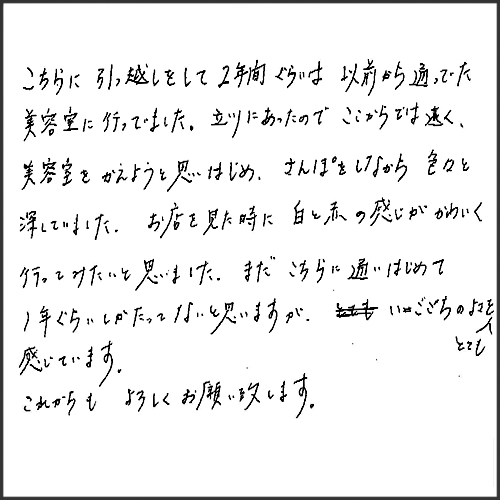 こちらに 引っ越しをして 2年間ぐらいは 以前から通ってた
美容室に行ってました。立川にあったので ここからでは遠く、
美容室を かえようと思いはじめ、さんぽをしながら 色々と
探していました。お店を見た時に 白と赤の感じが かわいく
行ってみたいと思いました。まだ こちらに 通いはじめて
1年ぐらいしかたってないと思いますが、とても いごこちのよさを
とても
感じています。
これからも よろしくお願い致します。